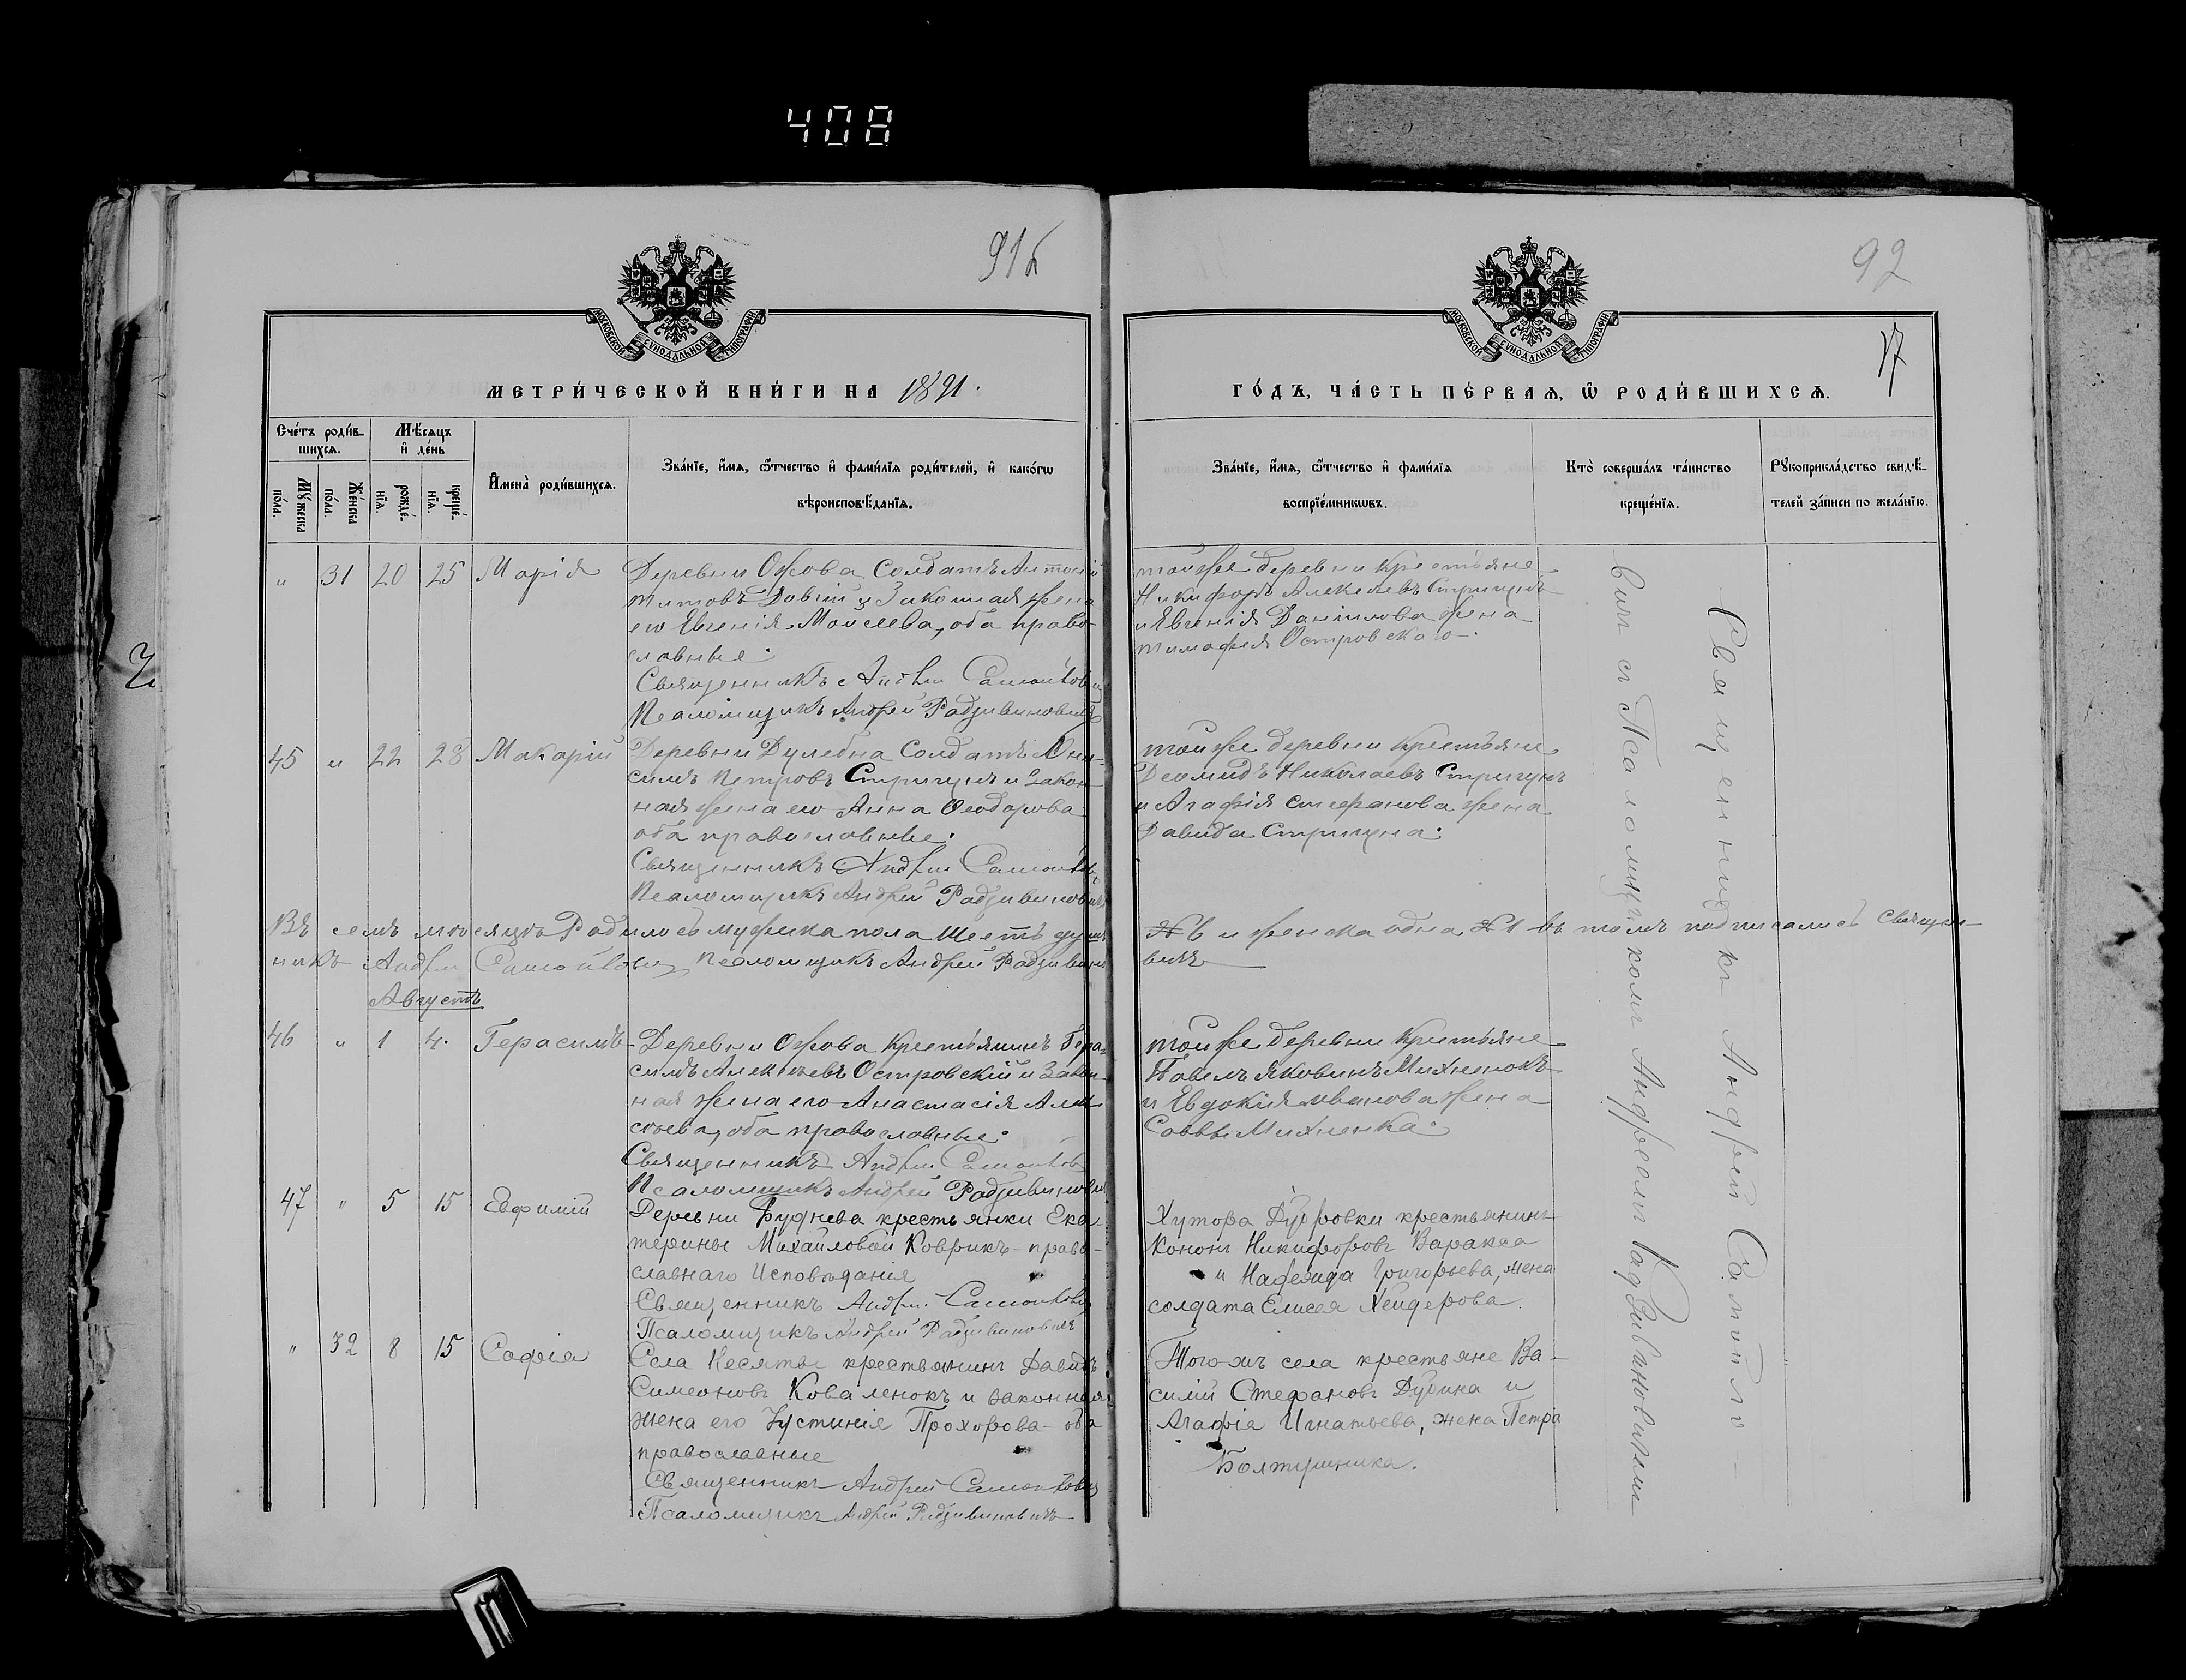 408
916
92
17
МОСКОВСКОЙ СѴНОДАЛЬНОЙ ТИПОГРАФІИ
МОСКОВСКОЙ СѴНОДАЛЬНОЙ ТИПОГРАФІИ
МЕТРИ́ЧЕСКОЙ КНИ́ГИ НА 1891.
ГО́ДЪ, ЧА́СТЬ ПЕ́РВАѦ, Ѽ РОДИ́ВШИХСѦ.
Сче́тъ роди́вшихсѧ.
Мꙋ́жеска по́ла.
Же́нска по́ла.
Мѣ́сѧцъ и҆ де́нь
рожде́нїѧ.
креще́нїѧ.
И҆мена̀ роди́вшихсѧ.
Зва́нїе, и҆́мѧ, ѻ҆́тчество и҆ фами́лїѧ роди́телей, и҆ како́гѡ
вѣроисповѣ́данїѧ.
Зва́нїе, и҆́мѧ, ѻ҆́тчество и҆ фами́лїѧ
воспрїе́мникѡвъ.
Кто̀ соверша́лъ та́инство
креще́нїѧ.
Рꙋкоприкла́дство свидѣ́телей за́писи по жела́нїю.
" 31 20 25 Марія
Деревни Ожова Солдатъ Антоній
Титовъ и Законная жена
его Евгенія Моисеева, оба право-
славные.
Священникъ Андрей Самойлович
Псаломщикъ Андрей Радзивиновичъ
тойже деревни крестьяне
Никифоръ Алексеевъ Стригунъ
и Евгенія Даніилова жена
Тимофея Островскаго.
45 " 22 28 Макарій
Деревни Дулебна Солдатъ Они-
симъ Петровъ Стригунъ и закон-
ная жена его Анна Ѳеодорова
оба православные.
Священникъ Андрей Самойлович
Псаломщикъ Андрей Радзивиновичъ
тойже деревни крестьяне
Деомидъ Николаевъ Стригунъ
и Агафія Стефанова жена
Давида Стригуна.
Въ семъ месяцъ Родилось мужска пола шесть душъ
№ 6 и женска одна № 1 въ томъ подписались Священ-
никъ Андрей Самойлович Псаломщикъ Андрей Радзивино-
вичъ
Августъ
46 " 1 4. Герасимъ
Деревни Ожова Крестьянинъ Гера-
симъ Алексеевъ Островскій и Закон-
ная жена его Анастасія Алек-
сеева, оба православные.
Священникъ Андрей Самойлович
Псаломщикъ Андрей Радзивинович
тойже деревни крестьяне
Павелъ Яковинъ Михненокъ
и Евдокія иванова жена
Саввы Михненка.
47 " 5 15 Евфимій
Деревни Буднева крестьянки Ека-
терины Михайловой Коврикъ - право-
славнаго Исповѣданія
Священникъ Андрей Самойлович
Псаломщикъ Андрей Радзивиновичъ
Хутора Дубровки крестьянинъ
Кононъ Никифоровъ Варакса
и Надежда Григорьева, жена
солдата Елисея Хейдерова.
" 32 8 15 Софія
Села Несяты крестьянинъ Давидъ
Симеоновъ Коваленокъ и законная
жена его Іустинія Прохорова - оба
православные
Священникъ Андрей Самойлович
Псаломщикъ Андрей Радзивиновичъ
Тогожъ села крестьяне Ва-
силій Стефановъ Дубина и
Агафія Игнатьева, жена Петра
Болтушника.
Священникъ Андрей Самойло-
вичъ съ Псаломщикомъ Андреемъ Радзивиновичемъ